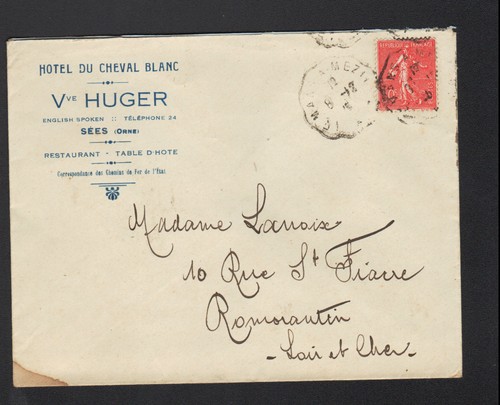 HOTEL DU CHEVAL BLANC
Vve HUGER
ENGLISH SPOKEN :: TÉLÉPHONE 24
SÉES (ORNE)
RESTAURANT - TABLE D'HOTE
Correspondance des Chemins de Fer de l'Etat
REPUBLIQUE FRANÇAISE
Madame Lanoix
10 Rue St Fiacre
Romorantin
- Loir et Cher -